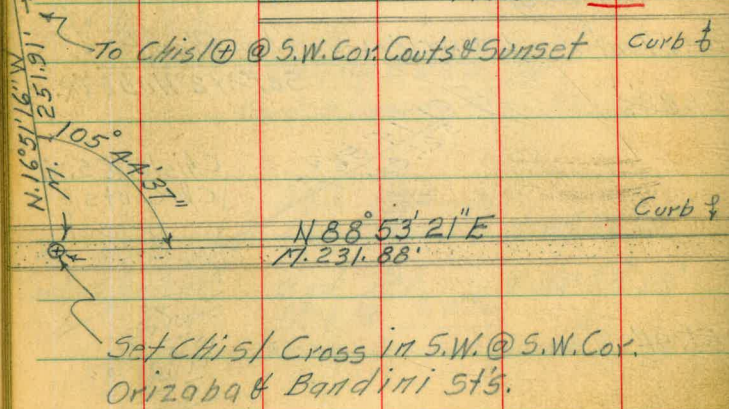 To Chisl ⊕ @ S.W. Cor. Couts & Sunset
Curb
N.16°51'16"W
M. 251.91'
105°44'37"
Curb
N 88°53'21"E
M. 231.88'
Set Chisl Cross in S.W. @ S.W. Cor.
Orizaba & Bandini St's.